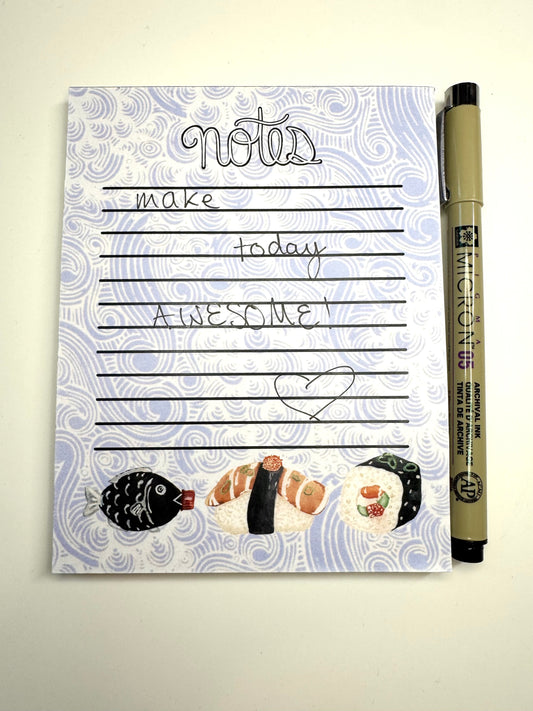 notes
make
today
AWESOME!
PIGMA
MICRON 05
ARCHIVAL INK
QUALITÉ D'ARCHIVAGE
TINTA DE ARCHIVE
AP